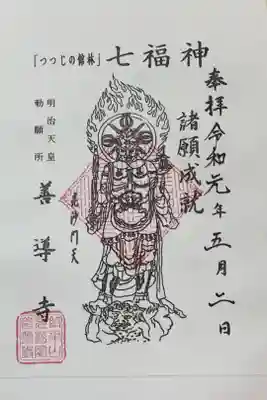 「つつじの館林」七福神
奉拝 令和元年五月二日
諸願成就
毘沙門天
明治天皇
勅願所
善導寺